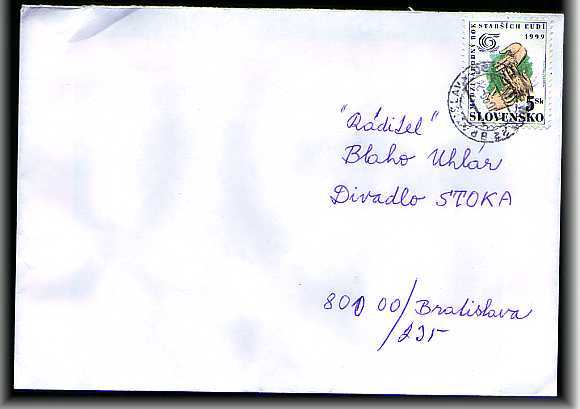 MEDZINÁRODNÝ ROK STARŠÍCH ĽUDÍ
1999
5 Sk
SLOVENSKO
"Ráditel"
Blaho Uhlár
Divadlo STOKA
800 00/Bratislava
/235